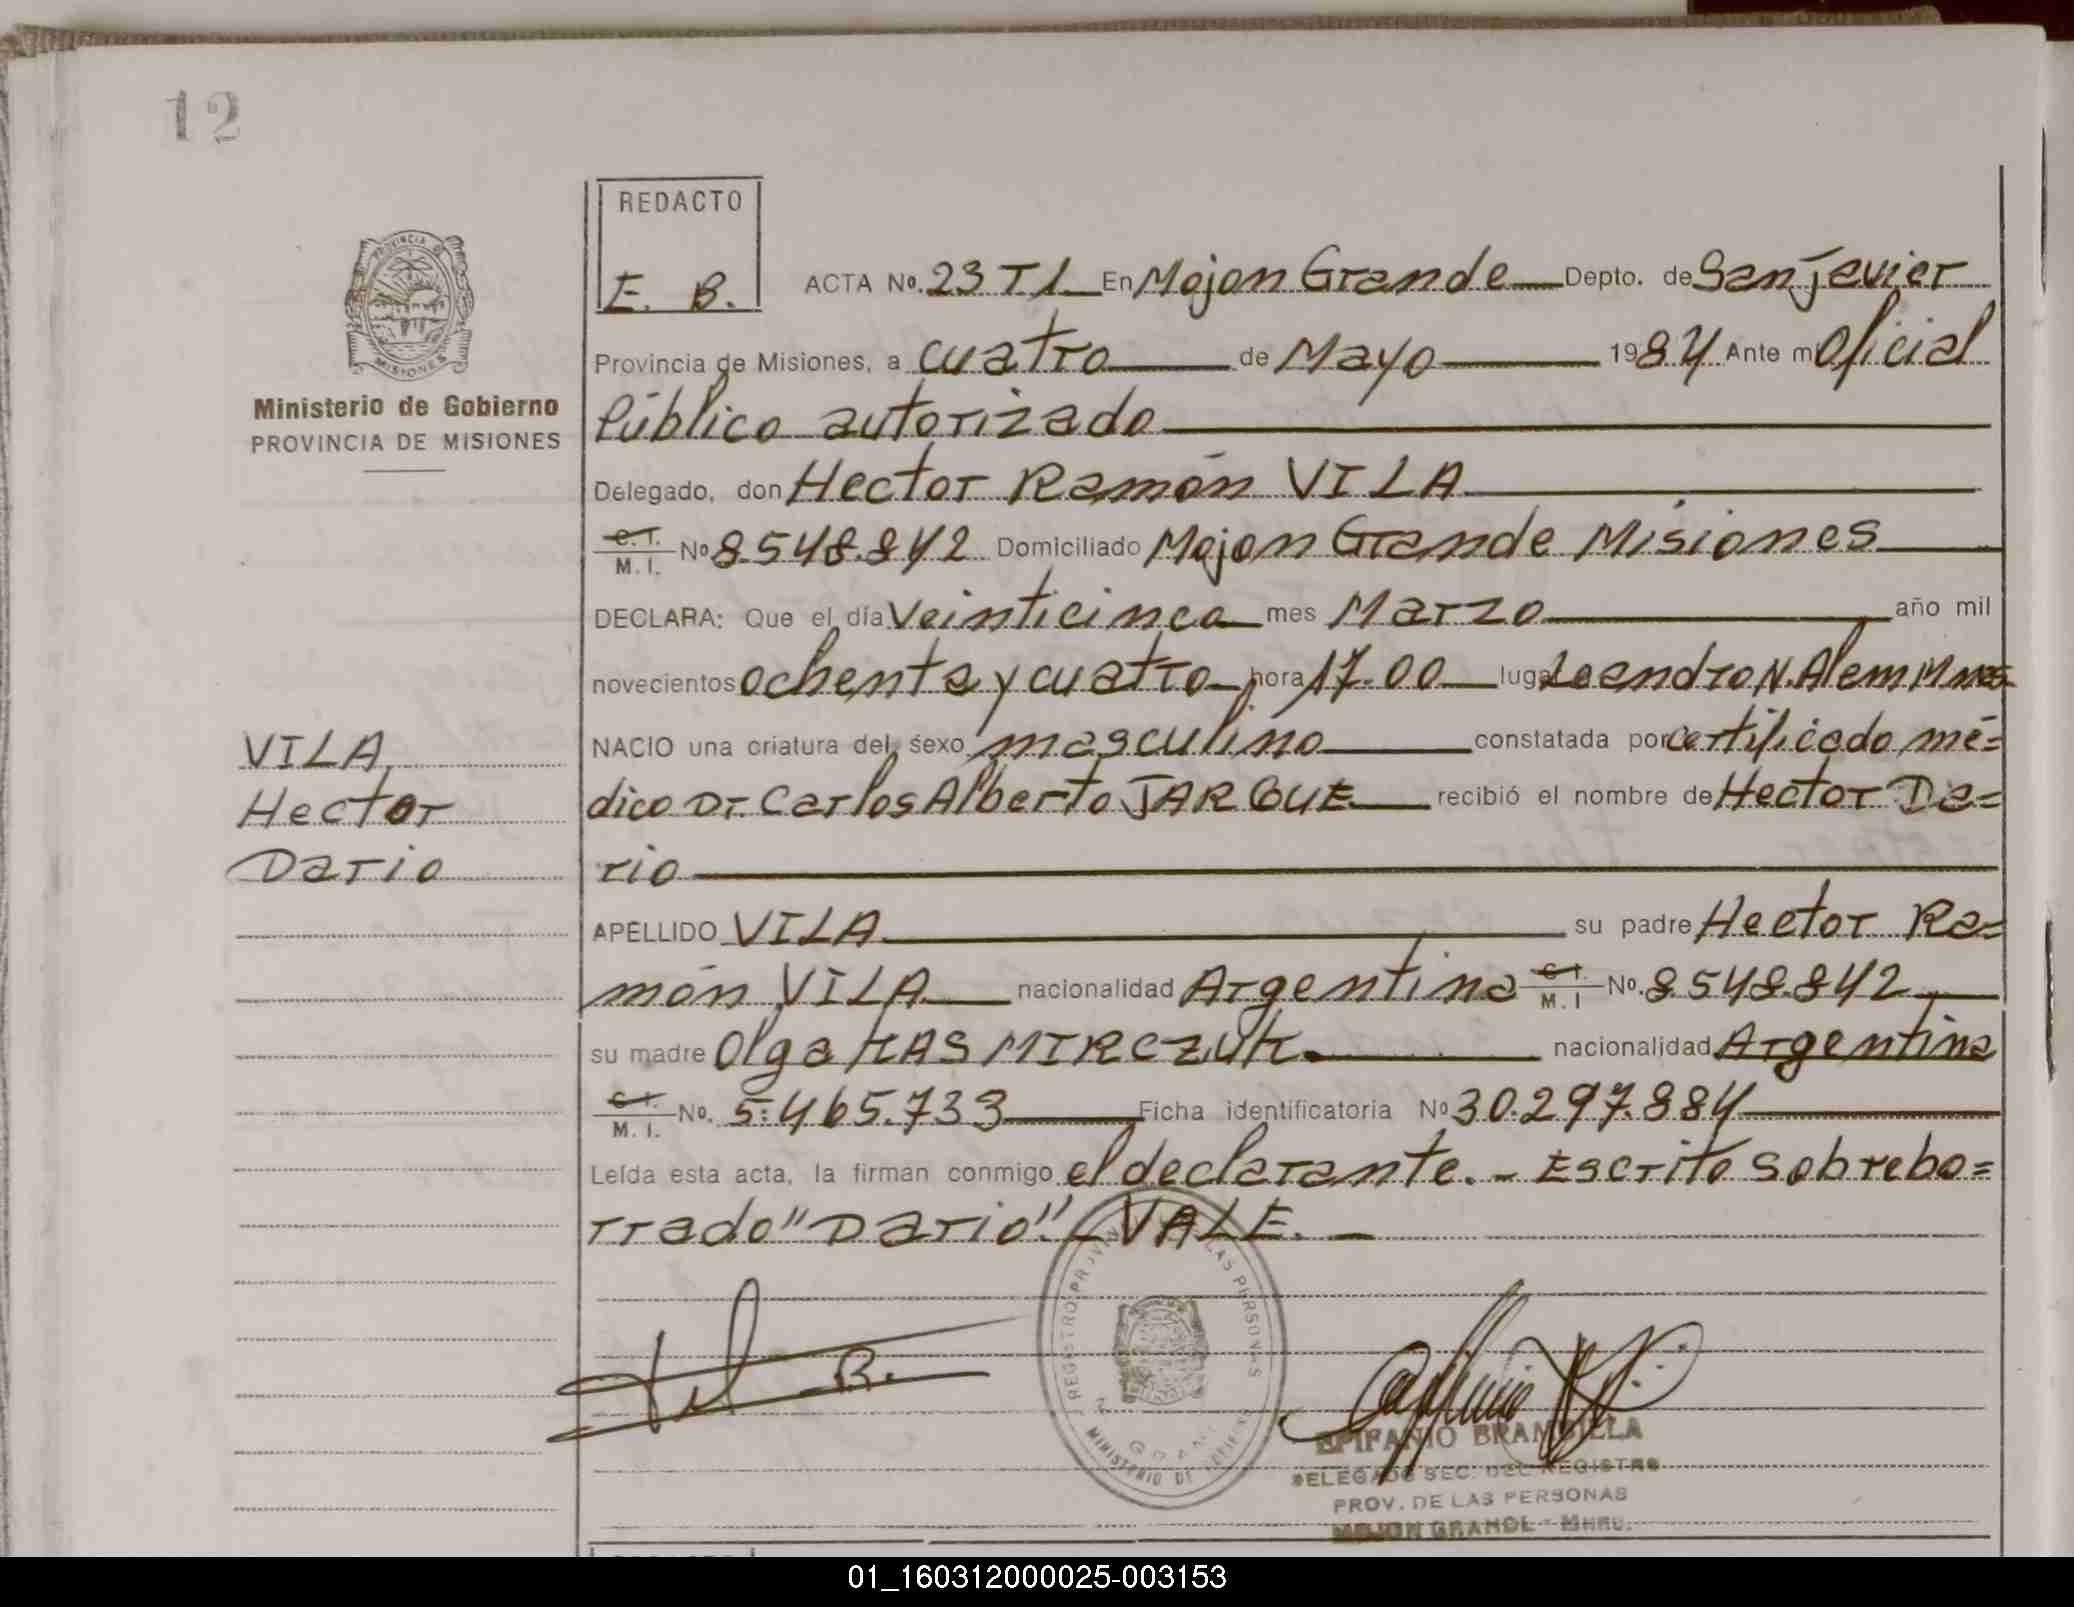 12
REDACTO
E. B.
PROVINCIA DE
MISIONES
Ministerio de Gobierno
PROVINCIA DE MISIONES
VILA,
Hector
Dario
ACTA Nº. 23 T1 En Mojon Grande Depto. de San Javier
Provincia de Misiones, a cuatro de Mayo 1984 Ante mi Oficial
Público autorizado
Delegado, don Hector Ramón VILA
C.I. M. I. Nº 8.548.842 Domiciliado Mojon Grande Misiones
DECLARA: Que el día Veinticinco mes Marzo año mil
novecientos ochenta y cuatro hora 17.00 lugar Leandro N. Alem Mnes
NACIO una criatura del sexo masculino constatada por certificado mé=
dico Dr. Carlos Alberto JARQUE recibió el nombre de Hector Da=
rio
APELLIDO VILA su padre Hector Ra=
món VILA nacionalidad Argentina C.I. M. I Nº. 8.548.842
su madre Olga KASMIRCZUK. nacionalidad Argentina
C.I. M. I. Nº. 5.465.733 Ficha identificatoria Nº 30.297.884
Leída esta acta, la firman conmigo el declarante.- Escrito sobrebo=
rrado "Dario". VALE.-
REGISTRO PROVIN LAS PERSONAS
MINISTERIO DE
EPIFANIO BRAMBILLA
DELEGADO SEC. DEL REGISTRO
PROV. DE LAS PERSONAS
MOJON GRANDE - Mnes.
01_160312000025-003153